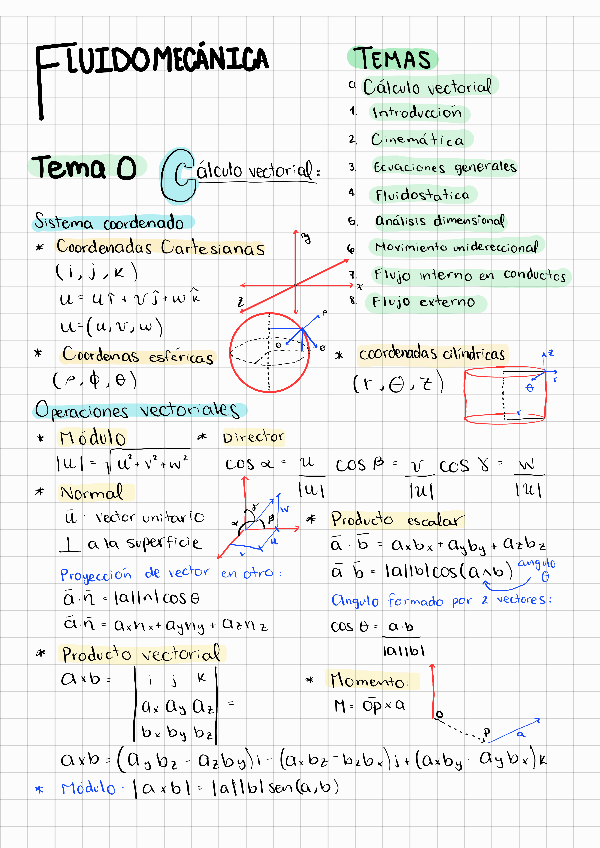 FLUIDOMECÁNICA
TEMAS
0. Cálculo vectorial
1. Introducción
2. Cinemática
3. Ecuaciones generales
4. Fluidostatica
5. Análisis dimensional
6. Movimiento unidereccional
7. Flujo interno en conductos
8. Flujo externo
Tema 0 Cálculo vectorial:
Sistema coordenado
* Coordenadas Cartesianas
(i, j, k)
u = u î + v ĵ + w k̂
u = (u, v, w)
y
x
z
* Coordenas esféricas
(ρ, ϕ, θ)
ρ
θ
* coordenadas cilíndricas
(r, θ, z)
z
r
θ
r
Operaciones vectoriales
* Módulo
|u| = √u² + v² + w²
* Director
cos α = u / |u| cos β = v / |u| cos γ = w / |u|
* Normal
ū · vector unitario
⊥ a la superficie
α γ β w
v u
Proyección de vector en otro:
ā · n̄ = |a||n| cos θ
ā · n̄ = axnx + ayny + aznz
* Producto escalar
ā · b̄ = axbx + ayby + azbz
ā b̄ = |a||b| cos(a∧b) angulo θ
Angulo formado por 2 vectores:
cos θ = a·b / |a||b|
* Producto vectorial
a×b = | i j k |
| ax ay az | =
| bx by bz |
* Momento:
M = op × a
O
P
a
a×b = (aybz - azby)i - (axbz - bzbx)j + (axby - aybx)k
* Módulo · |a×b| = |a||b| sen(a,b)